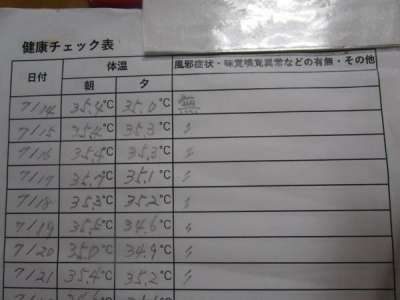 健康チェック表
日付 体温 風邪症状・味覚嗅覚異常などの有無・その他
朝 夕
7/14 ℃ 35.0℃ 無
7/15 ℃ 35.3℃ 〃
7/16 35.4℃ 35.3℃ 〃
7/17 ℃ 35.1℃ 〃
7/18 35.3℃ 35.2℃ 〃
7/19 ℃ 34.6℃ 〃
7/20 35.0℃ 34.9℃ 〃
7/21 35.4℃ 35.2℃ 〃